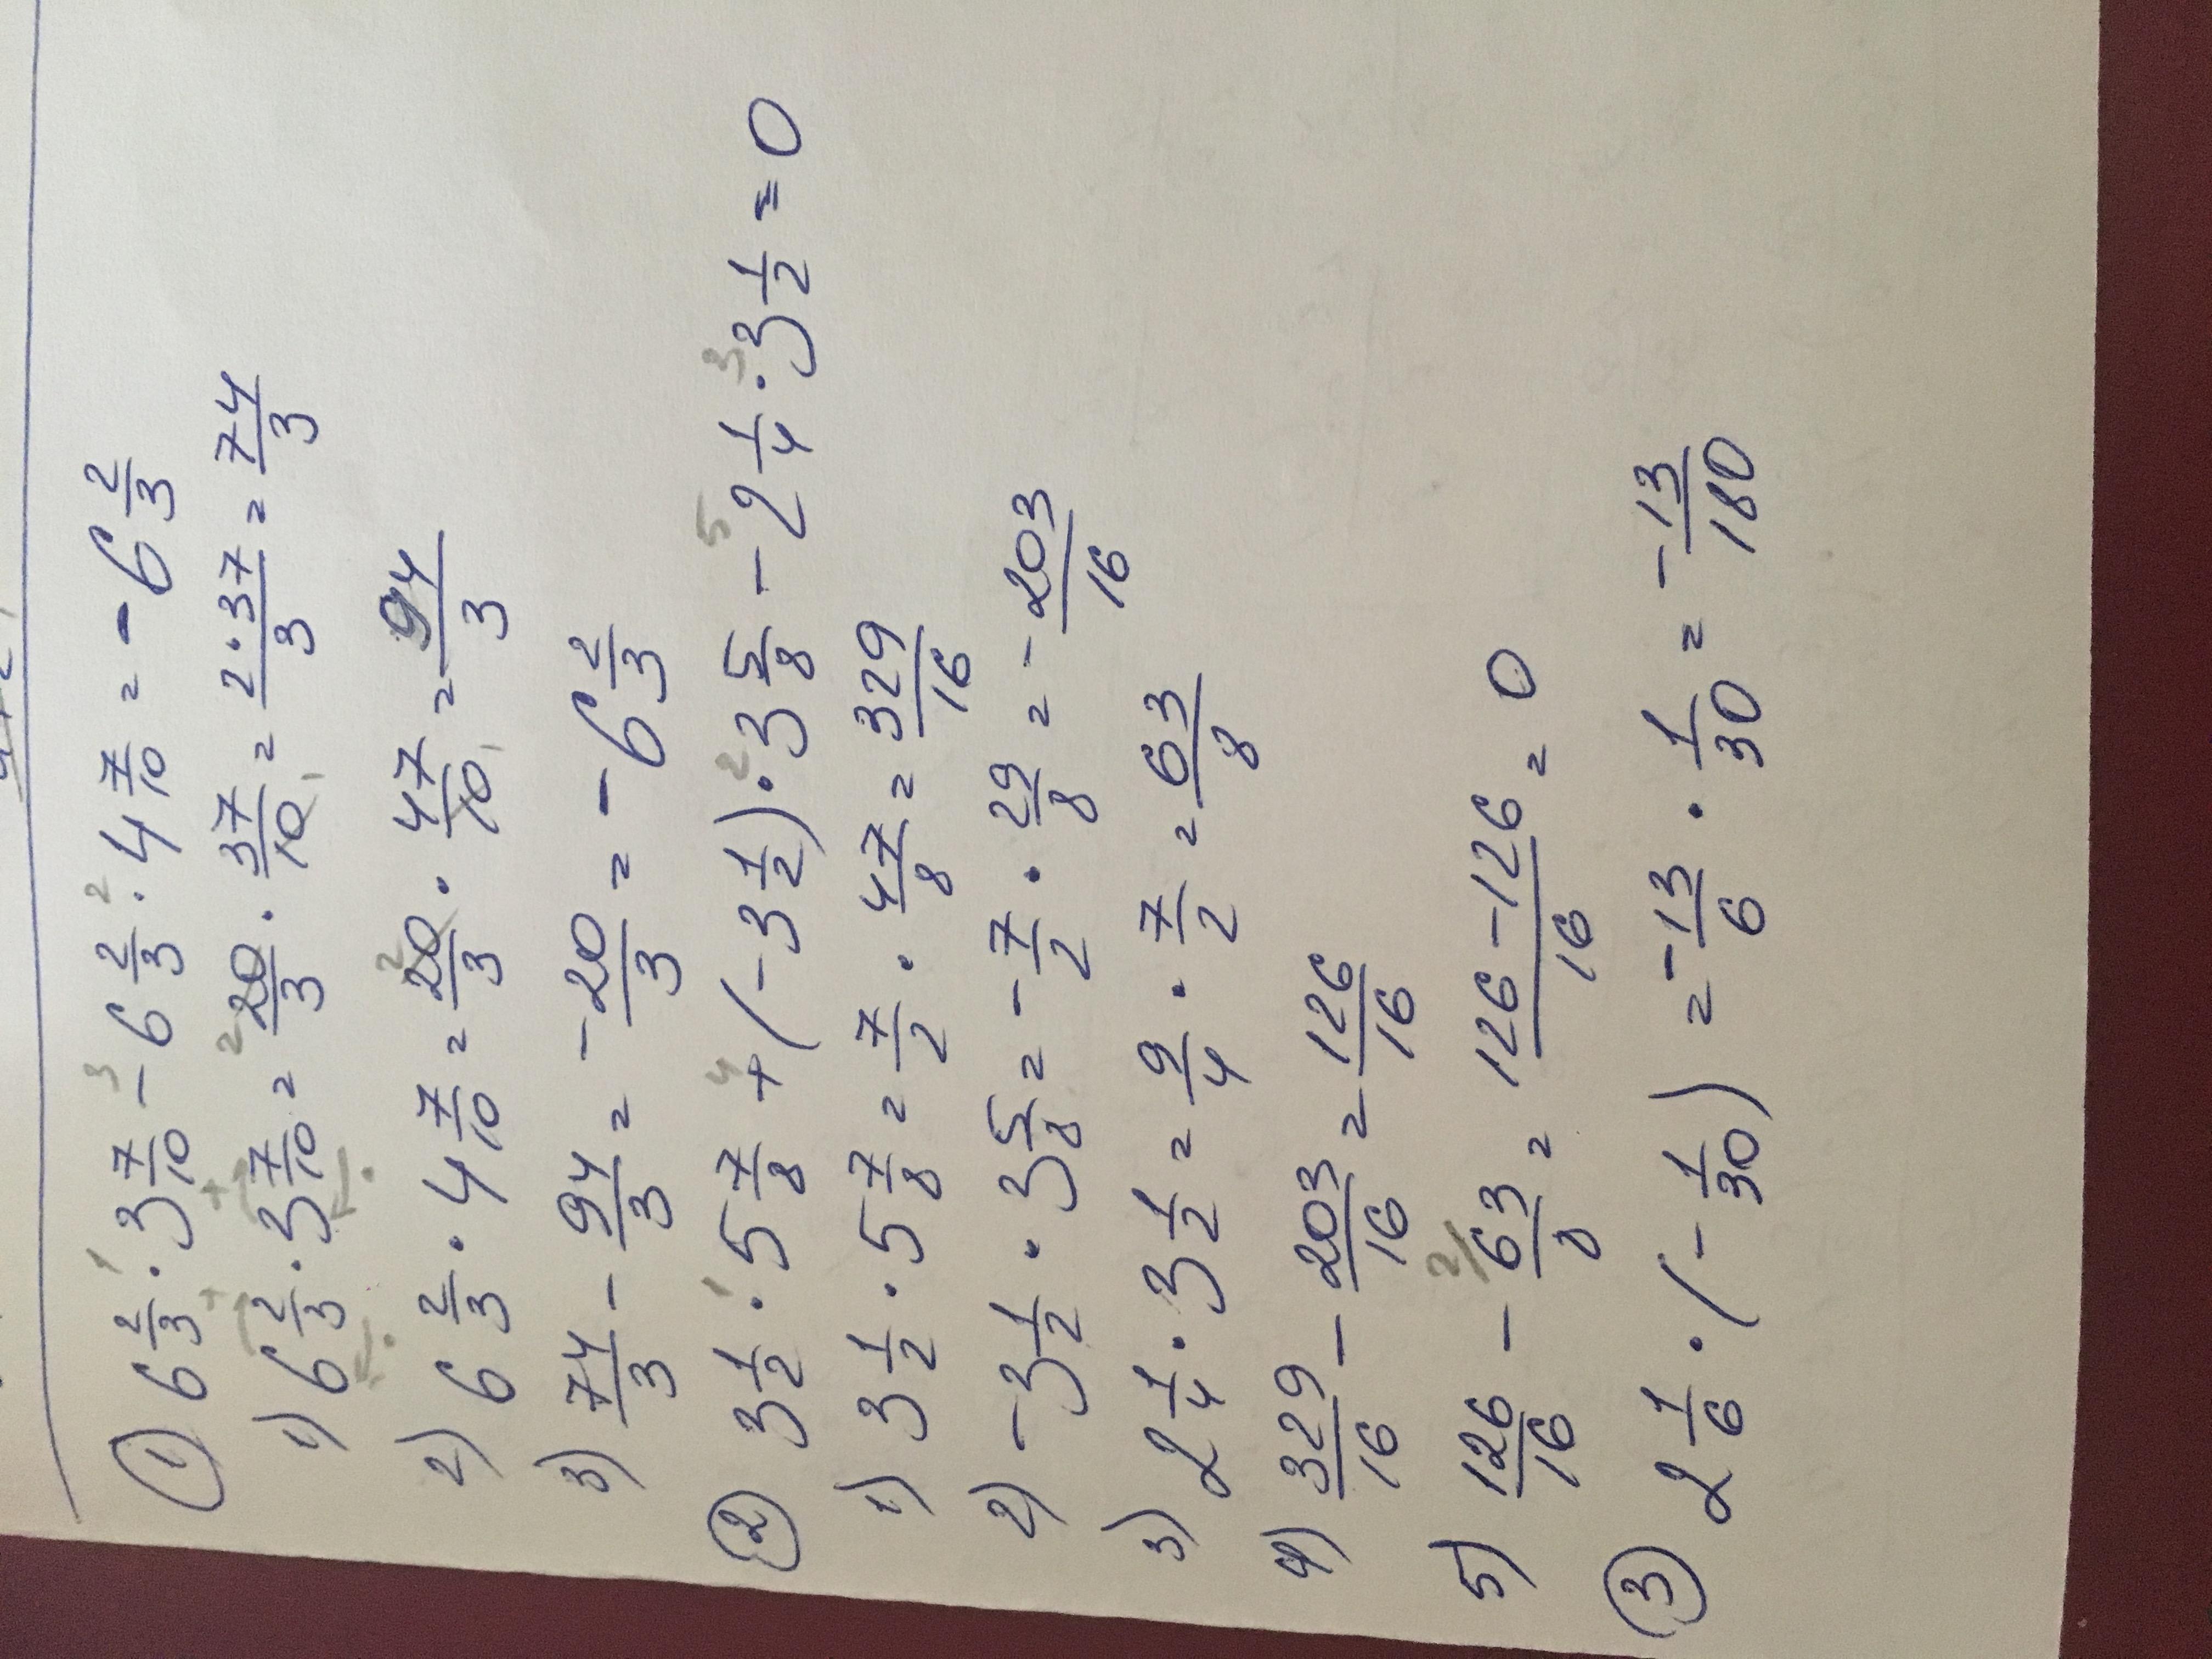 ① 6 2/3 · 3 7/10 - 6 2/3 · 4 7/10 = - 6 2/3
1) 6 2/3 · 3 7/10 = 20/3 · 37/10 = 2·37/3 = 74/3
2) 6 2/3 · 4 7/10 = 20/3 · 47/10 = 94/3
3) 74/3 - 94/3 = - 20/3 = - 6 2/3
② 3 1/2 · 5 7/8 + (- 3 1/2) · 3 5/8 - 2 1/4 · 3 1/2 = 0
1) 3 1/2 · 5 7/8 = 7/2 · 47/8 = 329/16
2) - 3 1/2 · 3 5/8 = - 7/2 · 29/8 = - 203/16
3) 2 1/4 · 3 1/2 = 9/4 · 7/2 = 63/8
4) 329/16 - 203/16 = 126/16
5) 126/16 - 63/8 = 126-126/16 = 0
③ 2 1/6 · (- 1/30) = - 13/6 · 1/30 = - 13/180